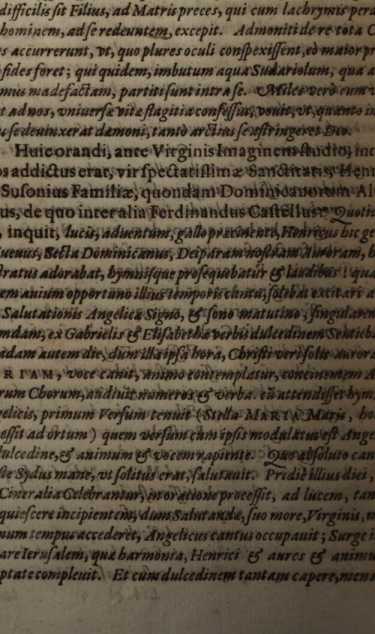 difficilis sit Filius, ad Matris preces, qui cum lachrymis
hominem, ad se redeuntem, excepit. Admoniti de re tota C
s accurrerunt, vt, quo plures oculi conspexissent, eò maior
fides foret; qui quidem, imbutum aqua Sudariolum, qua
mus madefactam, partiti sunt intra se. Miles verò cum
t ad nos, vniuersæ vitæ flagitia confessus, vouit, vt, quanto
se deuinxerat dæmoni, tantò arctius se astringeret Deo.
Huic orandi, ante Virginis Imaginem studio, inc
os addictus erat, vir spectatissimæ Sanctitatis, Henr
Susonius Familiæ, quondam Dominicanorum Al
us, de quo inter alia Ferdinandus Castellus: Quotie
, inquit, lucis, aduentum, gallo præcinente, Henricus
uenus, Secta Dominicanus, Deiparam nostram Auroram,
dratus adorabat, hymnisque prosequebatur & laudibus!
em auium opportuno illius temporis cantu, solebat excitari
Salutationis Angelicæ Signo, & sono matutino; singularem
mdam, ex Gabrielis & Elisabethæ verbis dulcedinem
adam autem die, dum illa ipsa hora, Christi veri solis aurora
RIAM, voce canit, animo contemplatur, concinentem A
rum Chorum, audiuit numeros & verba.
elicis, primum Versum tenuit (Stella MARIA Maris, ho
essit ad ortum) quem versum cum ipsis modulatus est Ange
dulcedine, & animum & vocem rapiente. Quo absoluto can
Sydus mane, vt solitus erat, salutauit. Pridie illius diei,
Cineralia Celebrantur, in oratione processit, ad lucem,
quiescere incipientem, dum Salutandæ, suo more, Virginis,
num tempus accederet, Angelicus cantus occupauit; Surge
are Ierusalem, quæ harmonia, Henrici & aures & animu
ptate compleuit. Et cùm dulcedinem tantam capere, mens